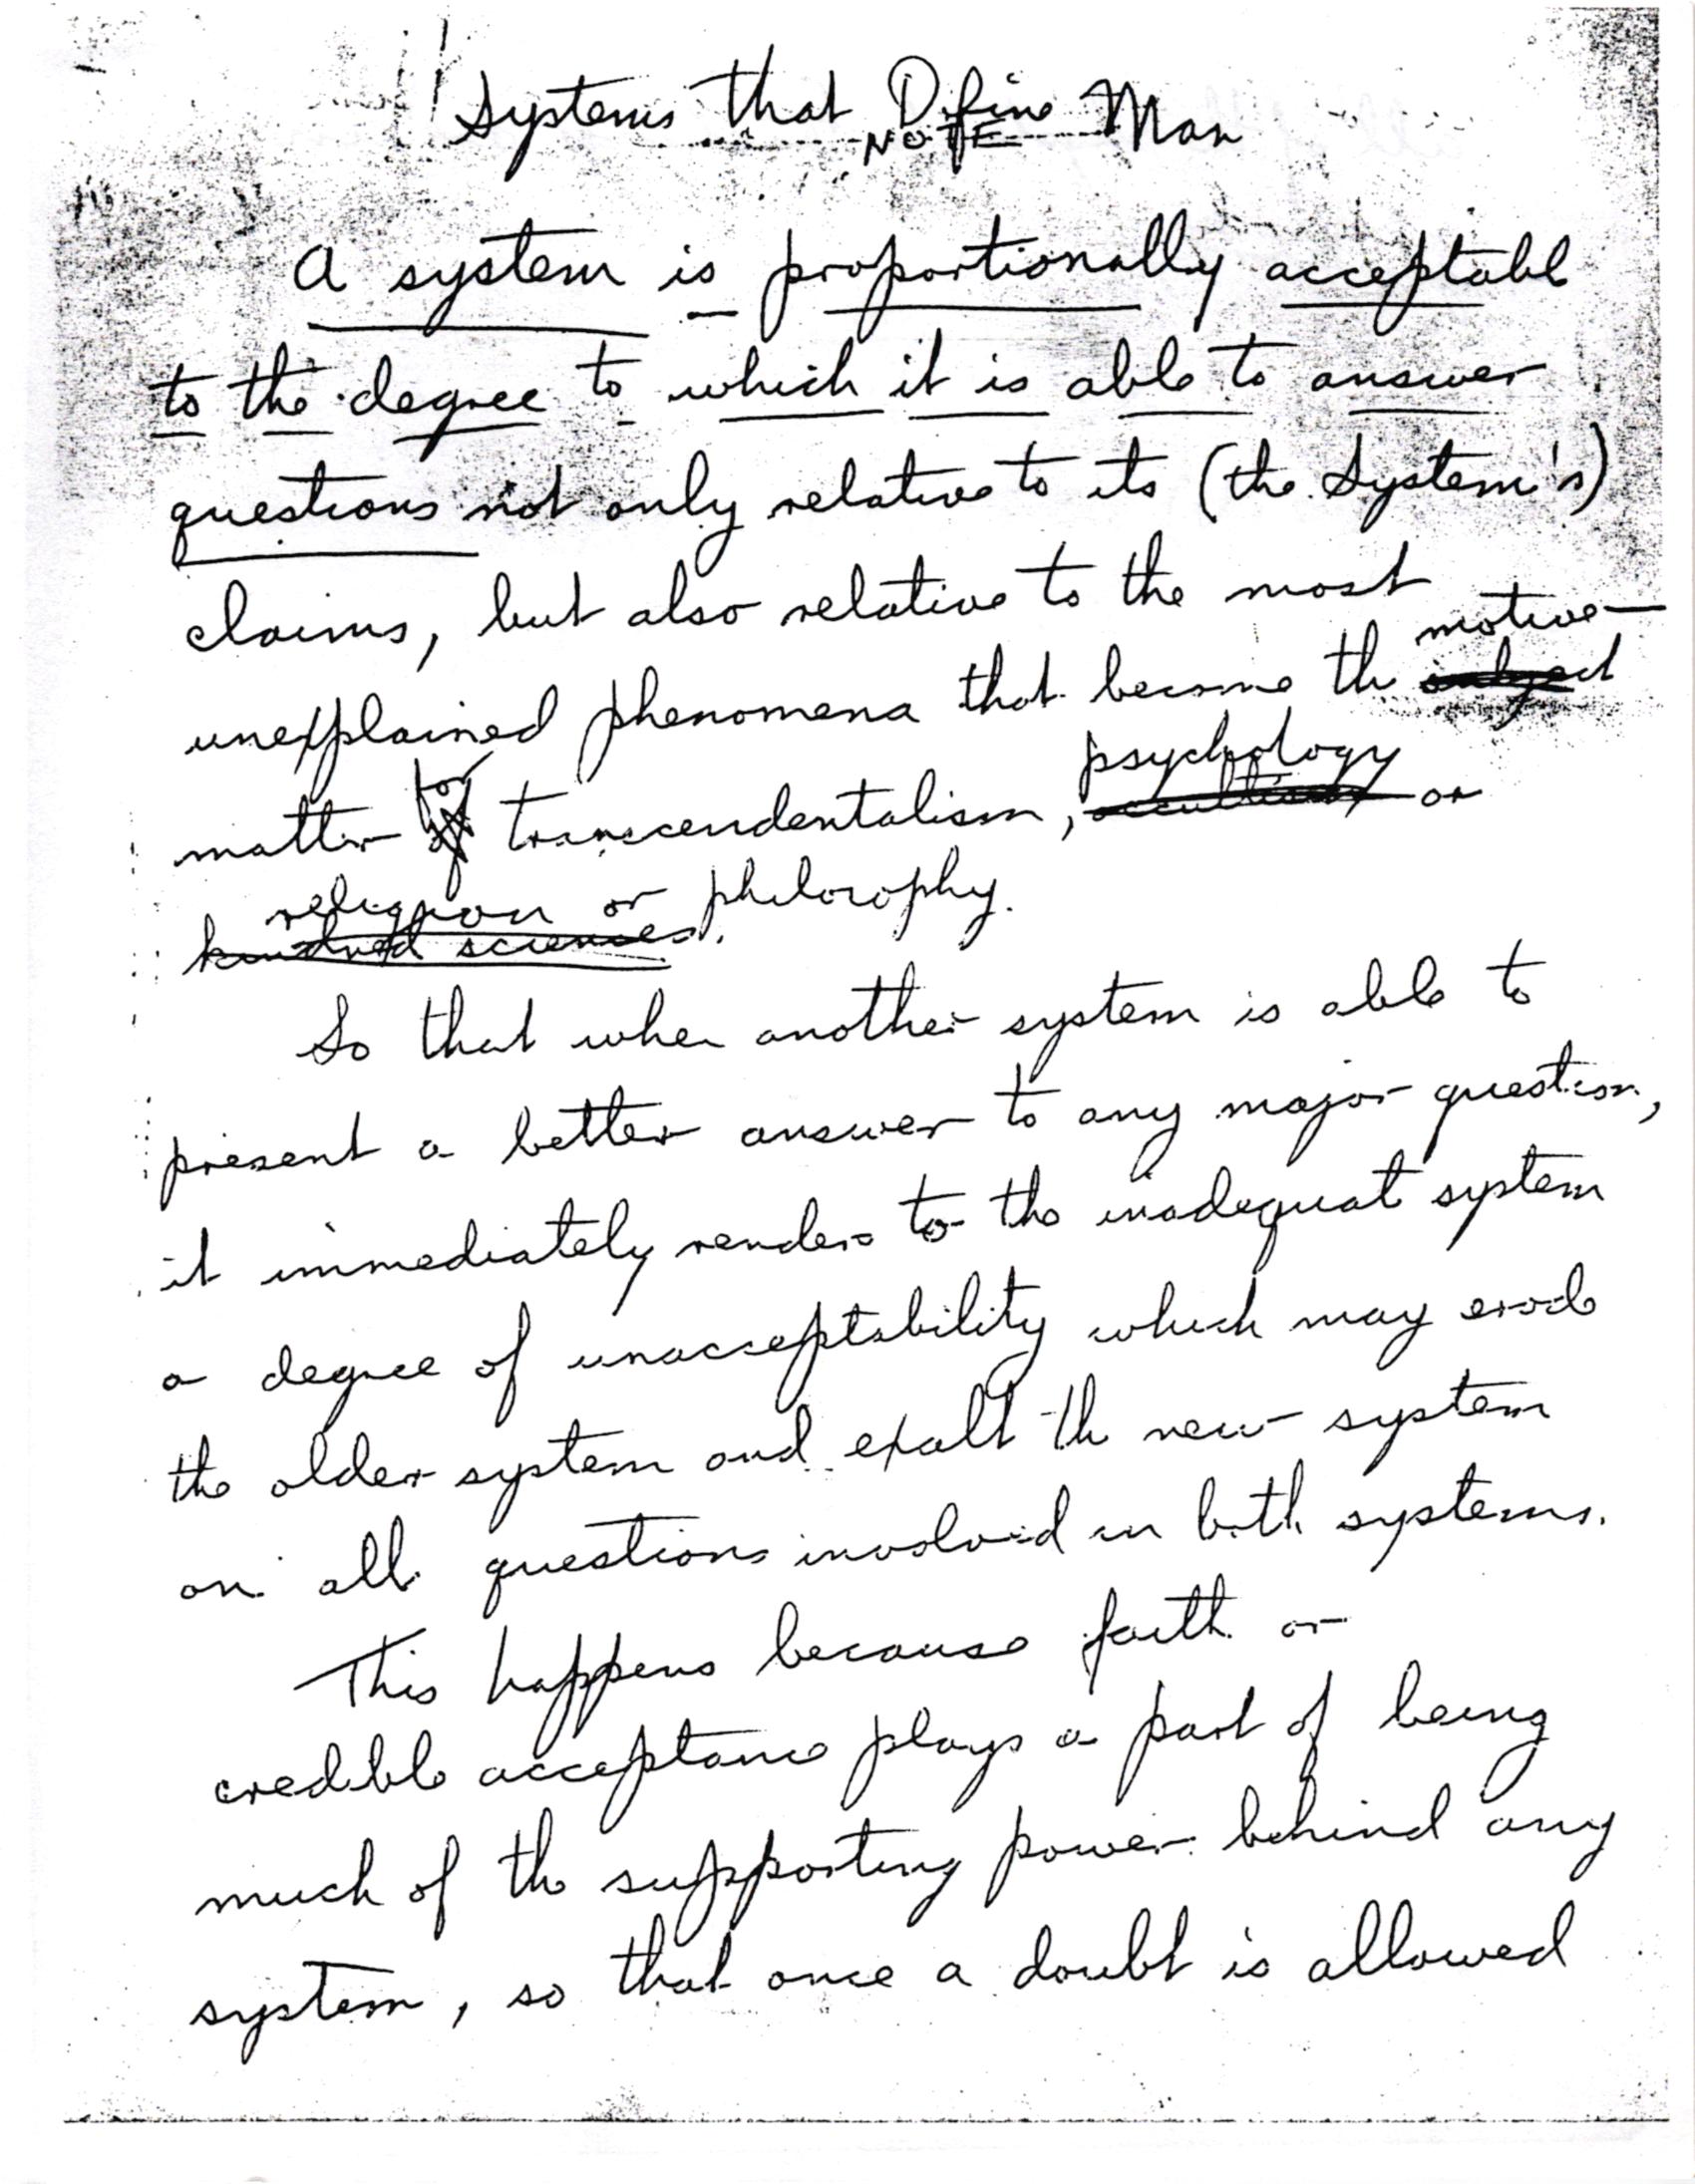 Systems that Define Man
NOTE
A system is proportionally acceptable
to the degree to which it is able to answer
questions not only relative to its (the System's)
claims, but also relative to the most
unexplained phenomena that become the motive
subject
matter for transcendentalism, psychology
occultism or
religion or philosophy.
kindred sciences.
So that when another system is able to
present a better answer to any major question,
it immediately renders to the inadequate system
a degree of unacceptability which may erode
the older system and exalt the new system
on all questions involved in both systems.
This happens because faith or
credible acceptance plays a part of being
much of the supporting power behind any
system, so that once a doubt is allowed